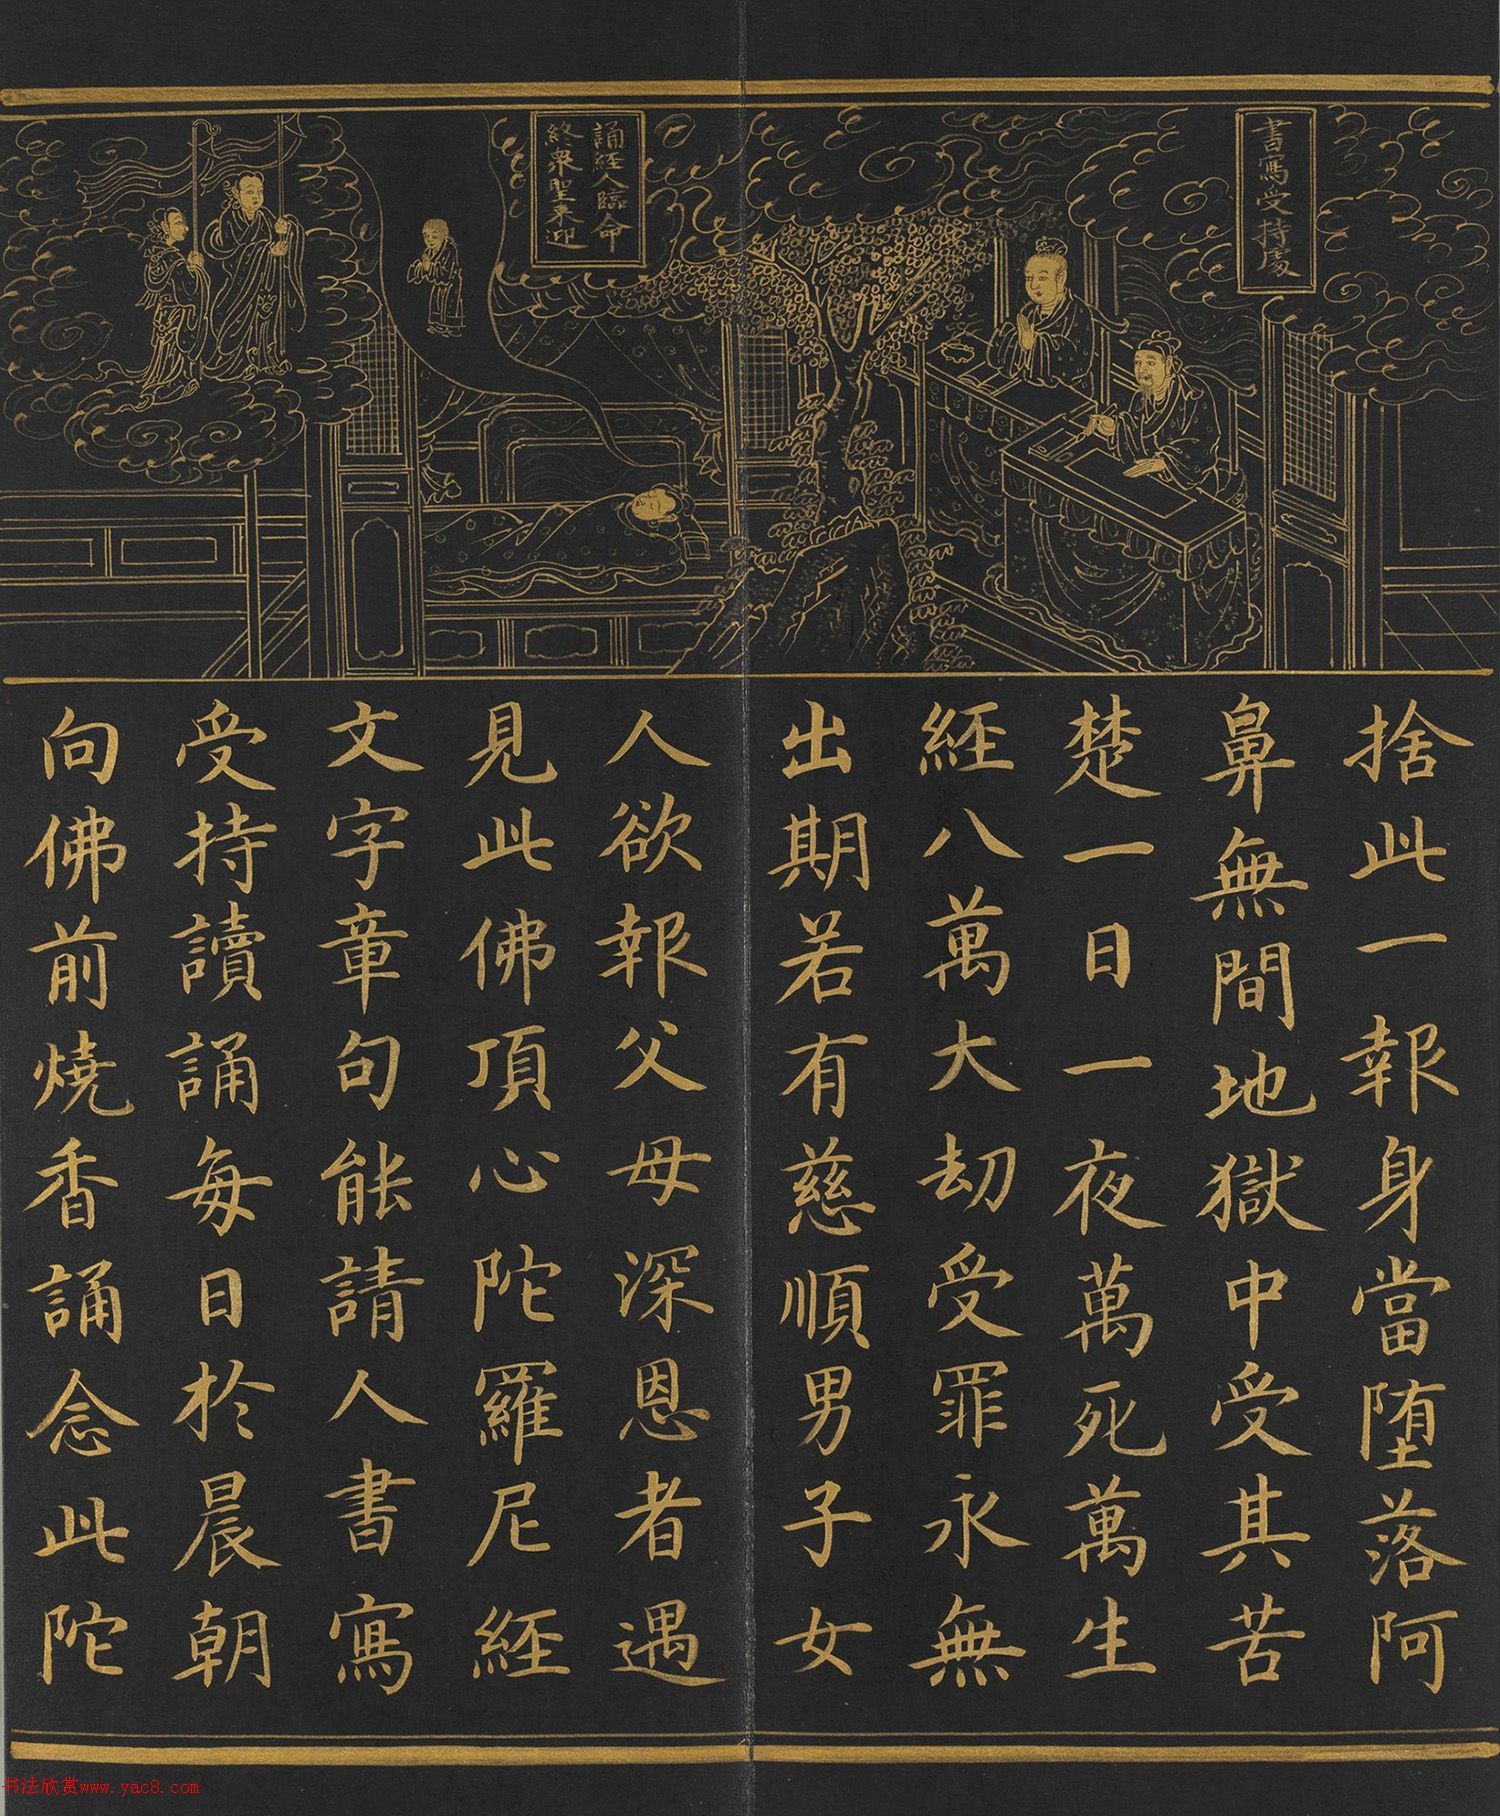 書寫受持處
誦經人臨命
終衆聖來迎
捨此一報身當堕落阿
鼻無間地獄中受其苦
楚一日一夜萬死萬生
經八萬大劫受罪永無
出期若有慈順男子女
人欲報父母深恩者遇
見此佛頂心陀羅尼經
文字章句能請人書寫
受持讀誦每日於晨朝
向佛前燒香誦念此陀
书法欣赏www.yac8.com